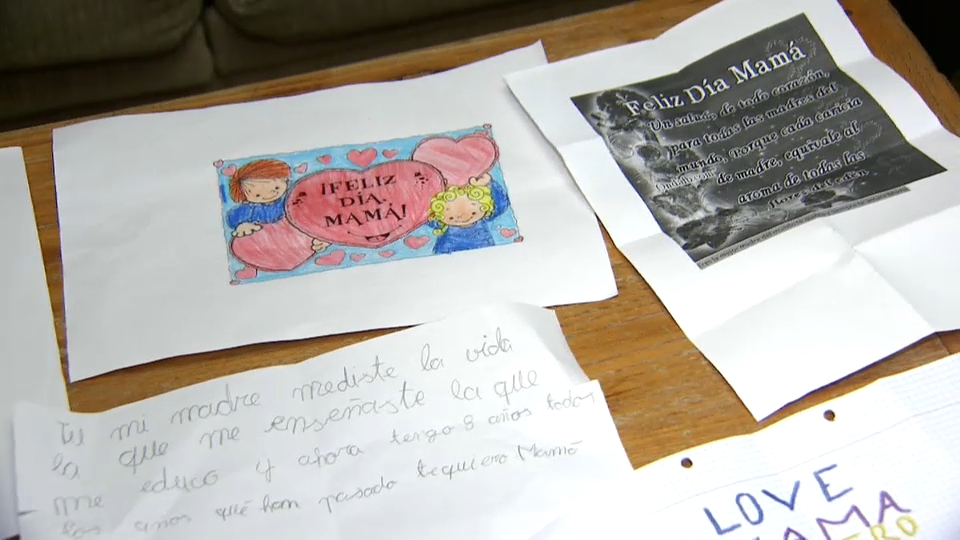 ¡FELIZ
DÍA,
MAMÁ!
Feliz Día Mamá
Un saludo de todo corazón,
para todas las madres del
mundo, Porque cada caricia
de madre, equivale al
aroma de todas las
flores del eden
tu mi madre mediste la vida
la que me enseñaste la que
me educo y ahora tengo 8 años todos
los años qué han pasado tequiero Mamá
LOVE
MAMA